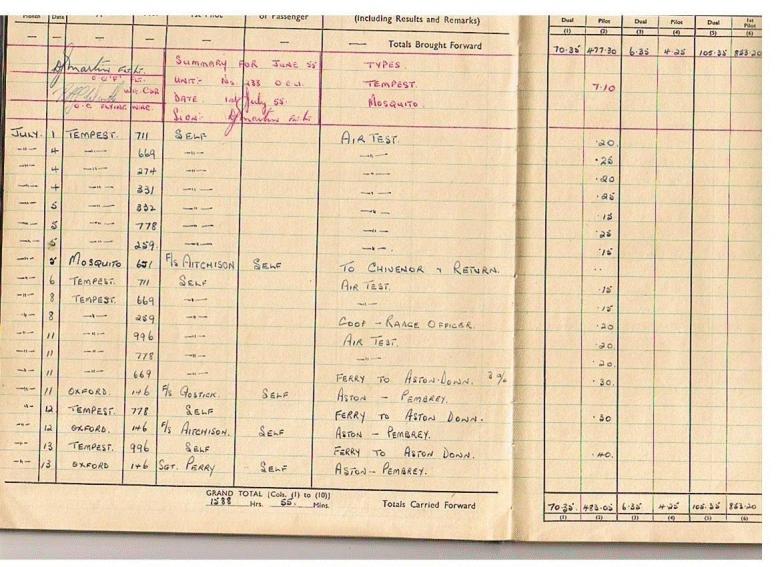 Month Date No. 1st Pilot or Passenger (Including Results and Remarks) Dual Pilot Dual Pilot Dual 1st Pilot
(1) (2) (3) (4) (5) (6)
— — — — — — Totals Brought Forward 70.35 477.30 6.35 4.25 105.35 853.20
SUMMARY FOR JUNE 55 TYPES.
O.C. "F" FLT.
UNIT:- No. 233 O.C.U. TEMPEST. 7.10
WG. CDR
DATE 1st July 55. MOSQUITO.
O.C. FLYING WING.
SIGN:- Martin
JULY. 1 TEMPEST. 711 SELF AIR TEST. .20
-"- 4 -"- 669 -"- -"- .25
-"- 4 -"- 274 -"- -"- .20
-"- 4 -"- 331 -"- -"- .25
-"- 5 -"- 332 -"- -"- .15
-"- 5 -"- 778 -"- -"- .25
-"- 5 -"- 259. -"- -"- .15
-"- 5 MOSQUITO 651 F/S AITCHISON SELF TO CHIVENOR & RETURN. ..
-"- 6 TEMPEST. 711 SELF AIR TEST. .15
-"- 8 TEMPEST. 669 -"- -"- .15
-"- 8 -"- 259 -"- COOP - RANGE OFFICER. .20
-"- 11 -"- 996 -"- AIR TEST. .20
11 -"- 778 -"- -"- .20
11 -"- 669 -"- FERRY TO ASTON-DOWN. .30
-"- 11 OXFORD. 146 F/S GOSTICK. SELF ASTON - PEMBREY.
-"- 12 TEMPEST. 778 SELF FERRY TO ASTON DOWN. .30
-"- 12 OXFORD. 146 F/S AITCHISON. SELF ASTON - PEMBREY.
-"- 13 TEMPEST. 996 SELF FERRY TO ASTON DOWN. .40.
-"- 13 OXFORD 146 SGT. PERRY SELF ASTON-PEMBREY.
GRAND TOTAL [Cols. (1) to (10)]
1588 Hrs. 55 Mins. Totals Carried Forward 70.35. 483.05 6.35 4.25 105.35 853.20
(1) (2) (3) (4) (5) (6)